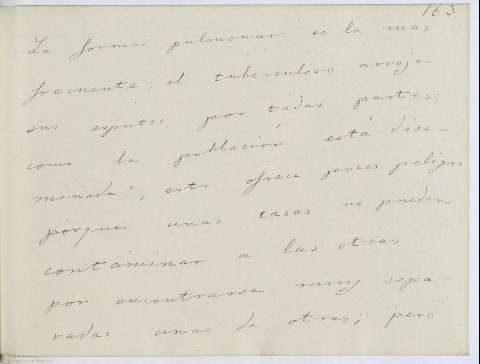 163.
La forma pulmonar es la mas
frecuente; el tuberculoso arroja
sus esputos por todas partes;
como la población está dise-
minada, esto ofrece pocos peligros
porque unas casas no pueden
contaminar a las otras
por encontrarse muy sepa-
radas unas de otras; pero